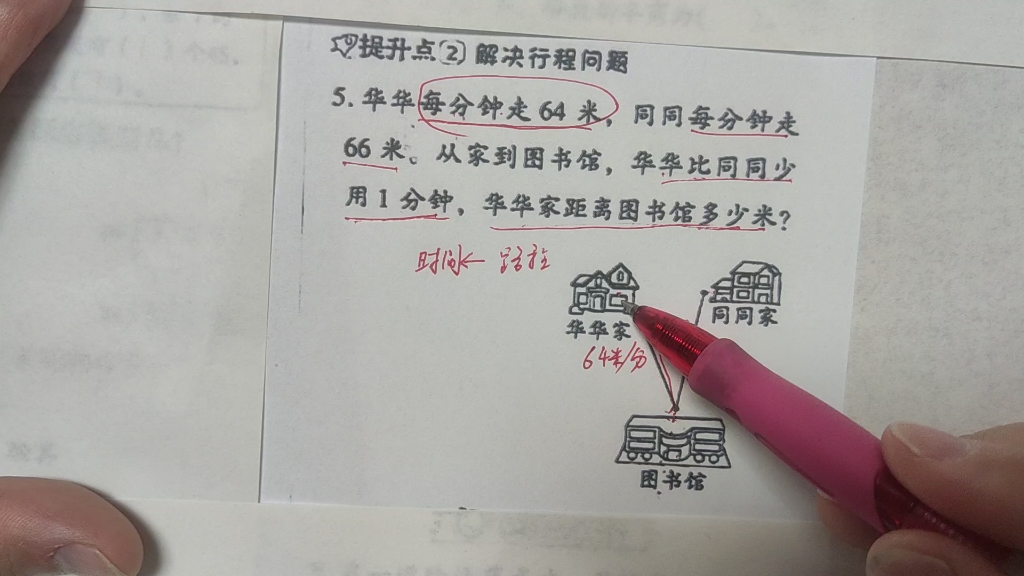 提升点② 解决行程问题
5. 华华每分钟走 64 米，同同每分钟走
66 米。从家到图书馆，华华比同同少
用 1 分钟，华华家距离图书馆多少米？
时间← 路程
华华家
同同家
64米/分
图书馆